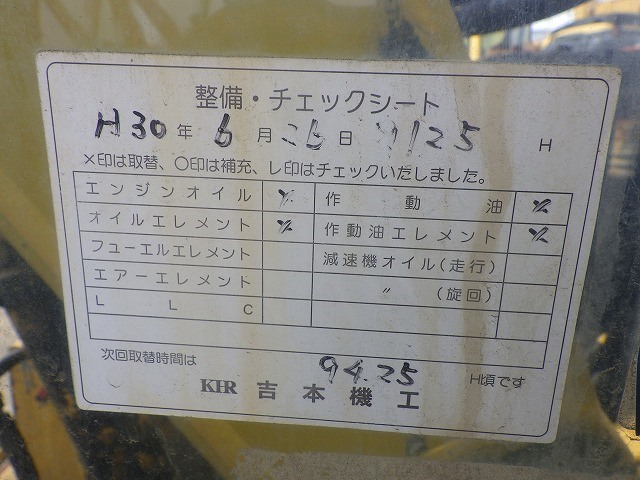 整備・チェックシート
H30年 6月26日 9125 H
×印は取替、○印は補充、レ印はチェックいたしました。
エンジンオイル × 作動油 ×
オイルエレメント × 作動油エレメント ×
フューエルエレメント 減速機オイル(走行)
エアーエレメント 〃 (旋回)
L L C
次回取替時間は 9425 H頃です
KHR 吉本機工